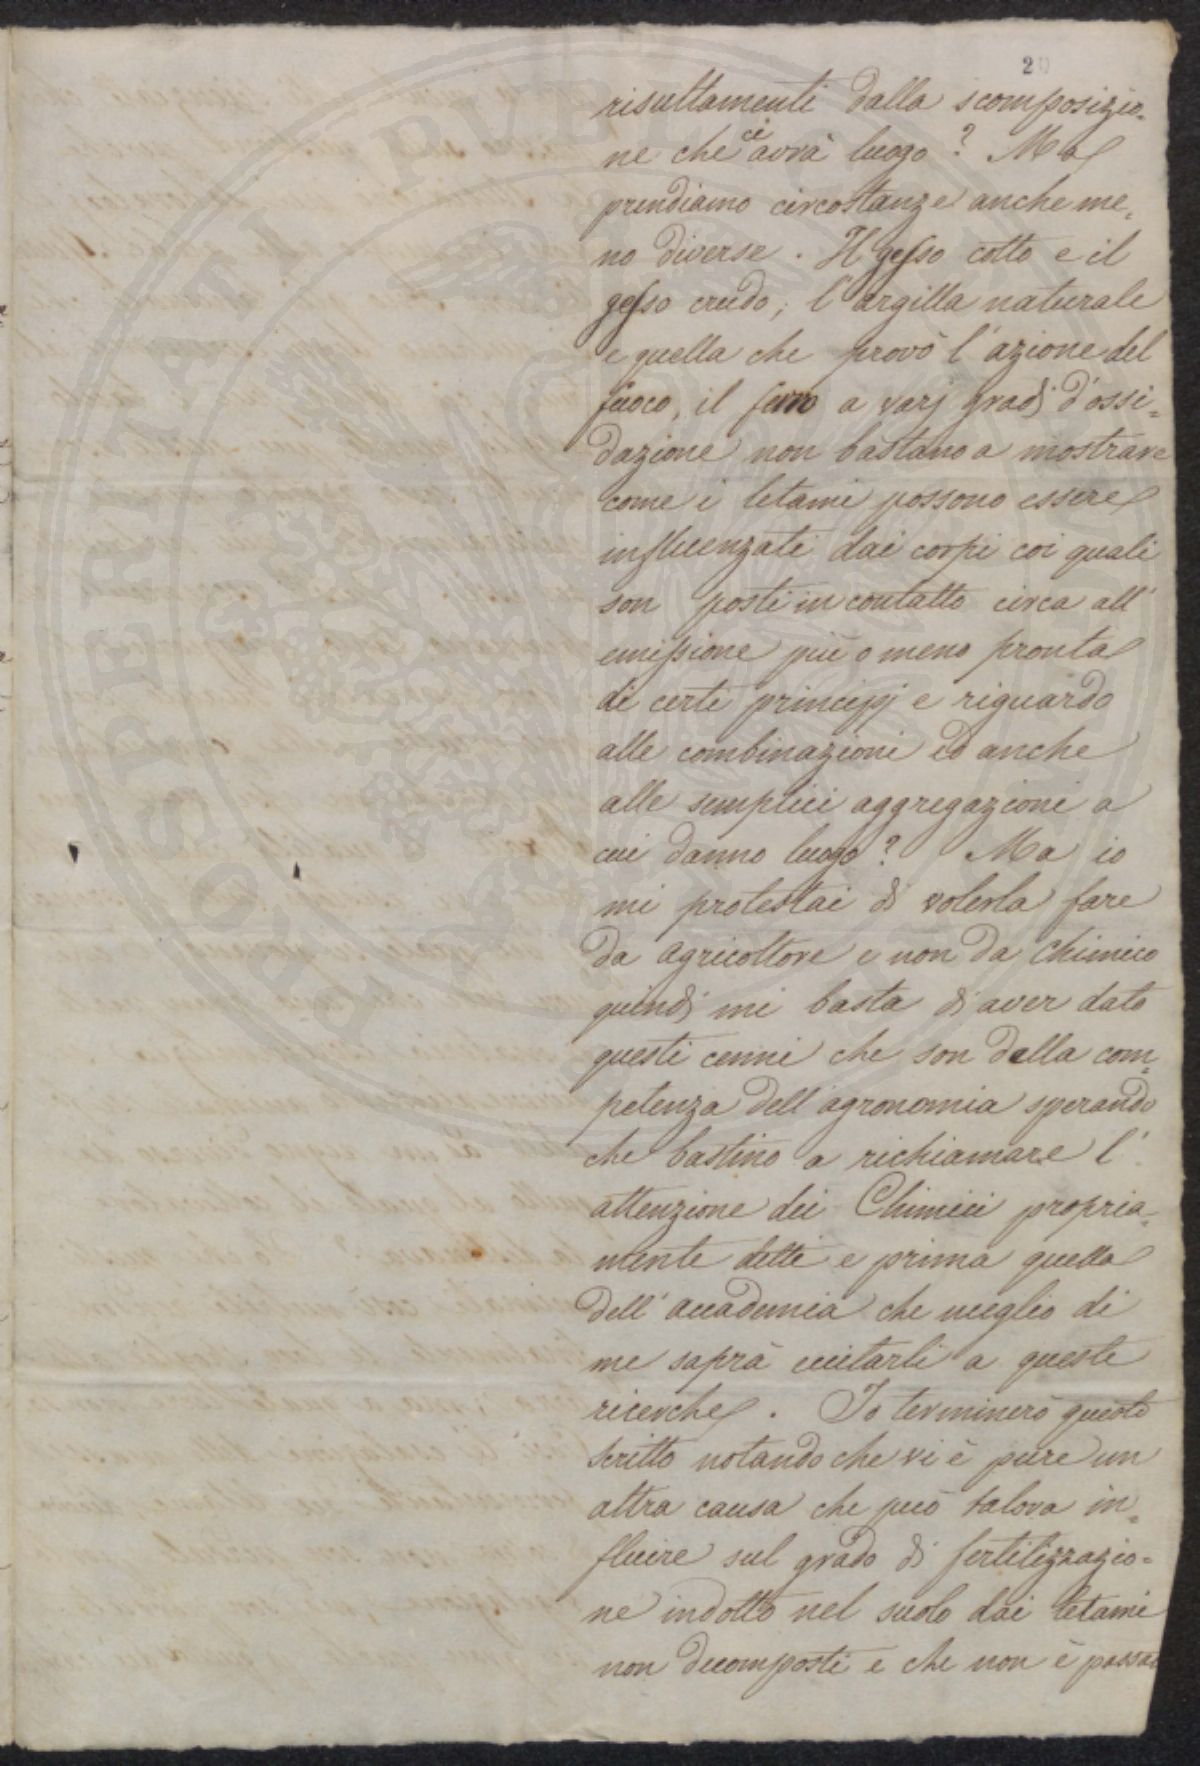 20
risultamenti dalla scomposizio=
ne che ci avrà luogo? Ma
prendiamo circostanze anche me=
no diverse. Il gesso cotto e il
gesso crudo, l'argilla naturale
e quella che provò l'azione del
fuoco, il ferro a varj gradi d'ossi=
dazione non bastano a mostrare
come i letami possono essere
influenzati dai corpi coi quali
son posti in contatto circa all'
emissione più o meno pronta
di certi principj e riguardo
alle combinazioni ed anche
alle semplici aggregazioni a
cui danno luogo? Ma io
mi protestai di volerla fare
da agricoltore e non da chimico
quindi mi basta di aver dato
questi cenni che son della com=
petenza dell'agronomia sperando
che bastino a richiamare l'
attenzione dei Chimici propria=
mente detti e prima quella
dell'accademia che meglio di
me saprà eccitarli a queste
ricerche. Io terminerò questo
scritto notando che vi è pure un
altra causa che può talora in=
fluire sul grado di fertilizzazio=
ne indotto nel suolo dai letami
non decomposti e che non è passa
PROSPERITATI PUBLICAE